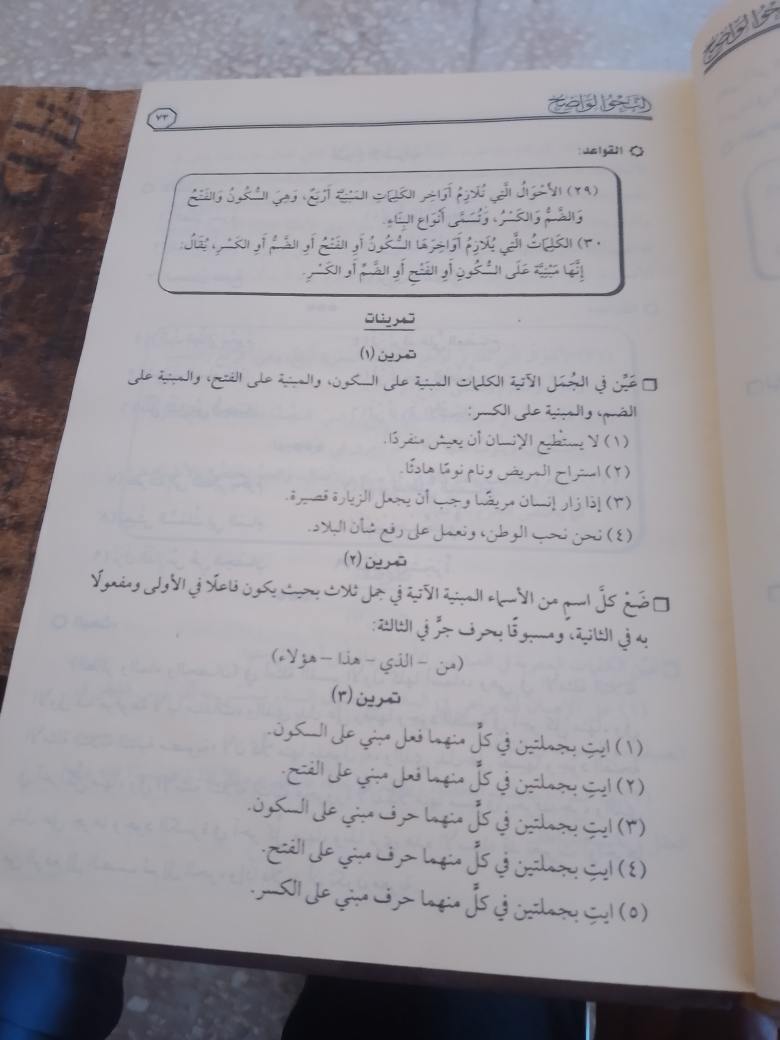 النحو الواضح
٧٣
القواعد:
(٢٩) الأَحْوَالُ الَّتِي تُلَازِمُ أَوَاخِر الكَلِمَاتِ المَبْنِيَّة أَرْبَعٌ، وَهِيَ السُّكُونُ وَالفَتْحُ
وَالضَّمُّ وَالكَسْرُ، وَتُسَمَّى أَنْوَاع البِنَاءِ.
٣٠) الكَلِمَاتُ الَّتِي يُلَازِمُ أَوَاخِرَهَا السُّكُونُ أَوِ الفَتْحُ أَوِ الضَّمُّ أَوِ الكَسْرِ، يُقَالُ:
إِنَّهَا مَبْنِيَّة عَلَى السُّكُونِ أَوِ الفَتْحِ أَوِ الضَّمِّ أَوِ الكَسْرِ.
تمرينات
تمرين (١)
عَيِّن في الجُمَل الآتية الكلمات المبنية على السكون، والمبنية على الفتح، والمبنية على
الضم، والمبنية على الكسر:
(١) لا يستْطيع الإنسان أن يعيش منفردًا.
(٢) استراح المريض ونام نومًا هادئًا.
(٣) إذا زار إنسان مريضًا وجب أن يجعل الزيارة قصيرة.
(٤) نحن نحب الوطن، ونعمل على رفع شأن البلاد.
تمرين (٢)
ضَعْ كلَّ اسمٍ من الأسماء المبنية الآتية في جمل ثلاث بحيث يكون فاعلًا في الأولى ومفعولًا
به في الثانية، ومسبوقًا بحرف جرٍّ في الثالثة:
(من – الذي – هذا – هؤلاء)
تمرين (٣)
(١) ايتِ بجملتين في كلٍّ منهما فعل مبني على السكون.
(٢) ايتِ بجملتين في كلٍّ منهما فعل مبني على الفتح.
(٣) ايتِ بجملتين في كلٍّ منهما حرف مبني على السكون.
(٤) ايتِ بجملتين في كلٍّ منهما حرف مبني على الفتح.
(٥) ايتِ بجملتين في كلٍّ منهما حرف مبني على الكسر.